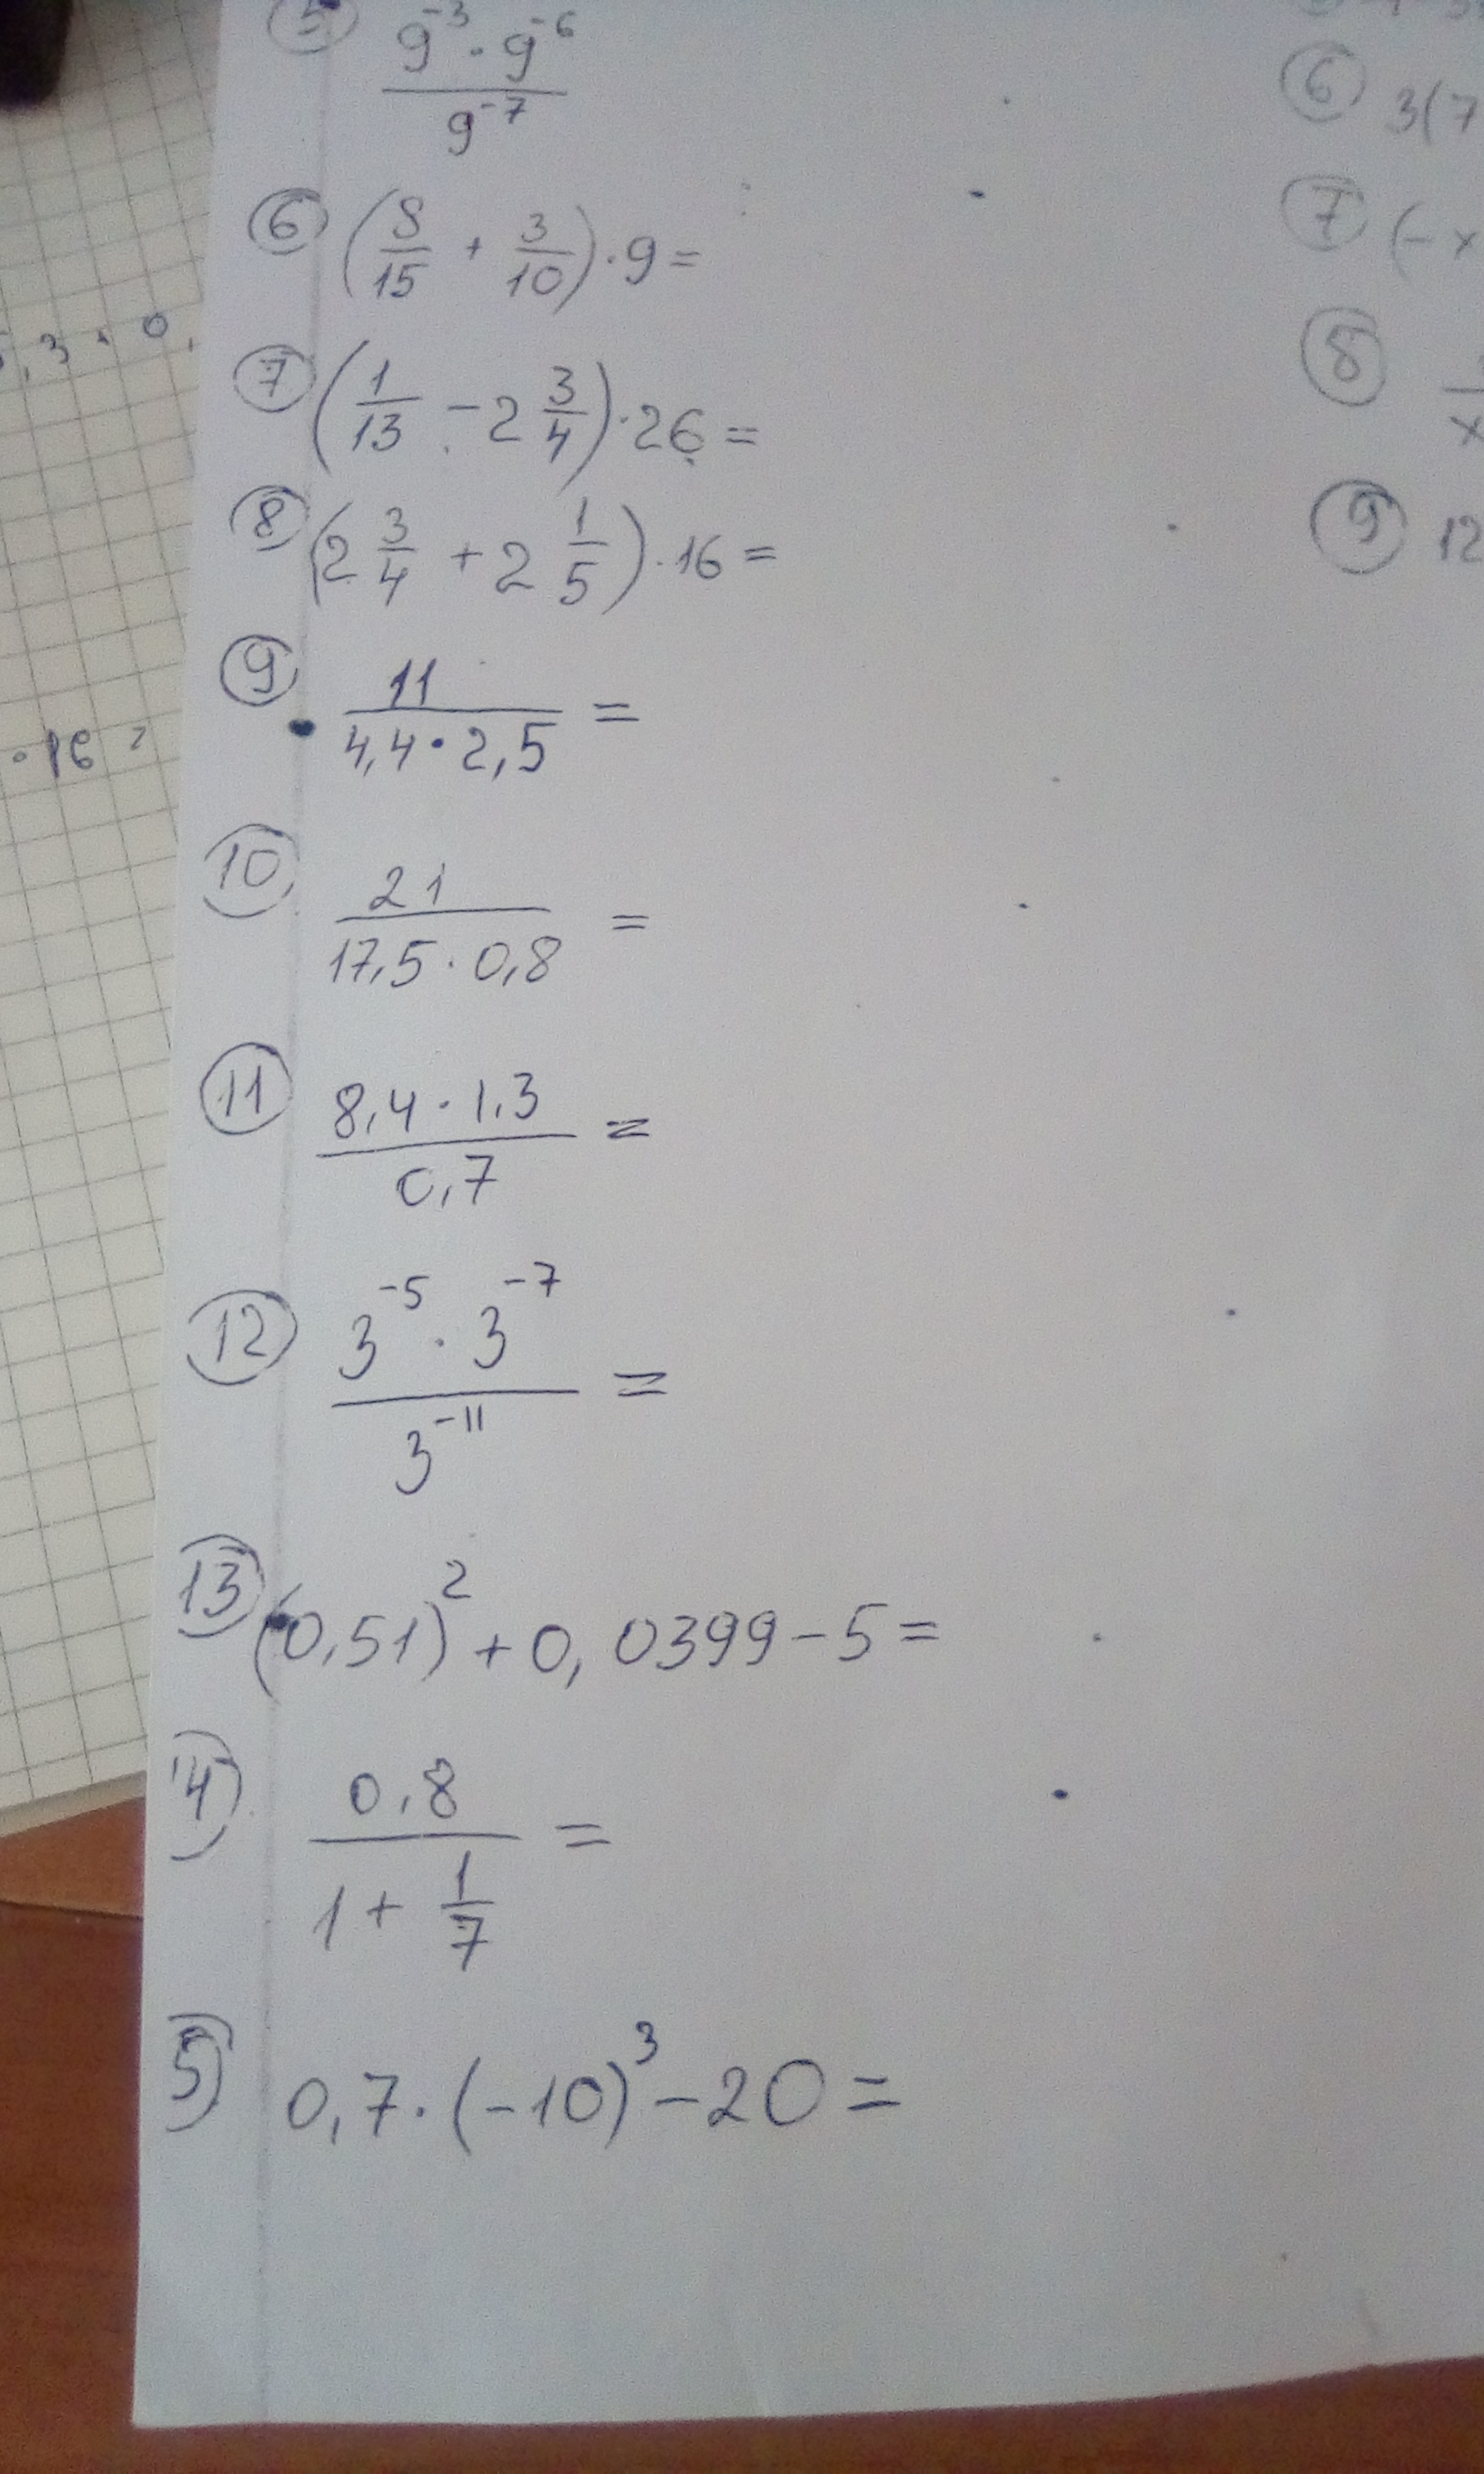 ⑤ 9⁻³ · 9⁻⁶ / 9⁻⁷
⑥ (8/15 + 3/10) · 9 =
⑦ (1/13 - 2 3/4) · 26 =
⑧ (2 3/4 + 2 1/5) · 16 =
⑨ 11 / 4,4 · 2,5 =
⑩ 21 / 17,5 · 0,8 =
⑪ 8,4 · 1,3 / 0,7 =
⑫ 3⁻⁵ · 3⁻⁷ / 3⁻¹¹ =
⑬ (0,51)² + 0,0399 - 5 =
14) 0,8 / 1 + 1/7 =
5) 0,7 · (-10)³ - 20 =
⑥ 3(7
⑦ (- x
⑧
x
⑨ 12
,3 · 0,
· 16